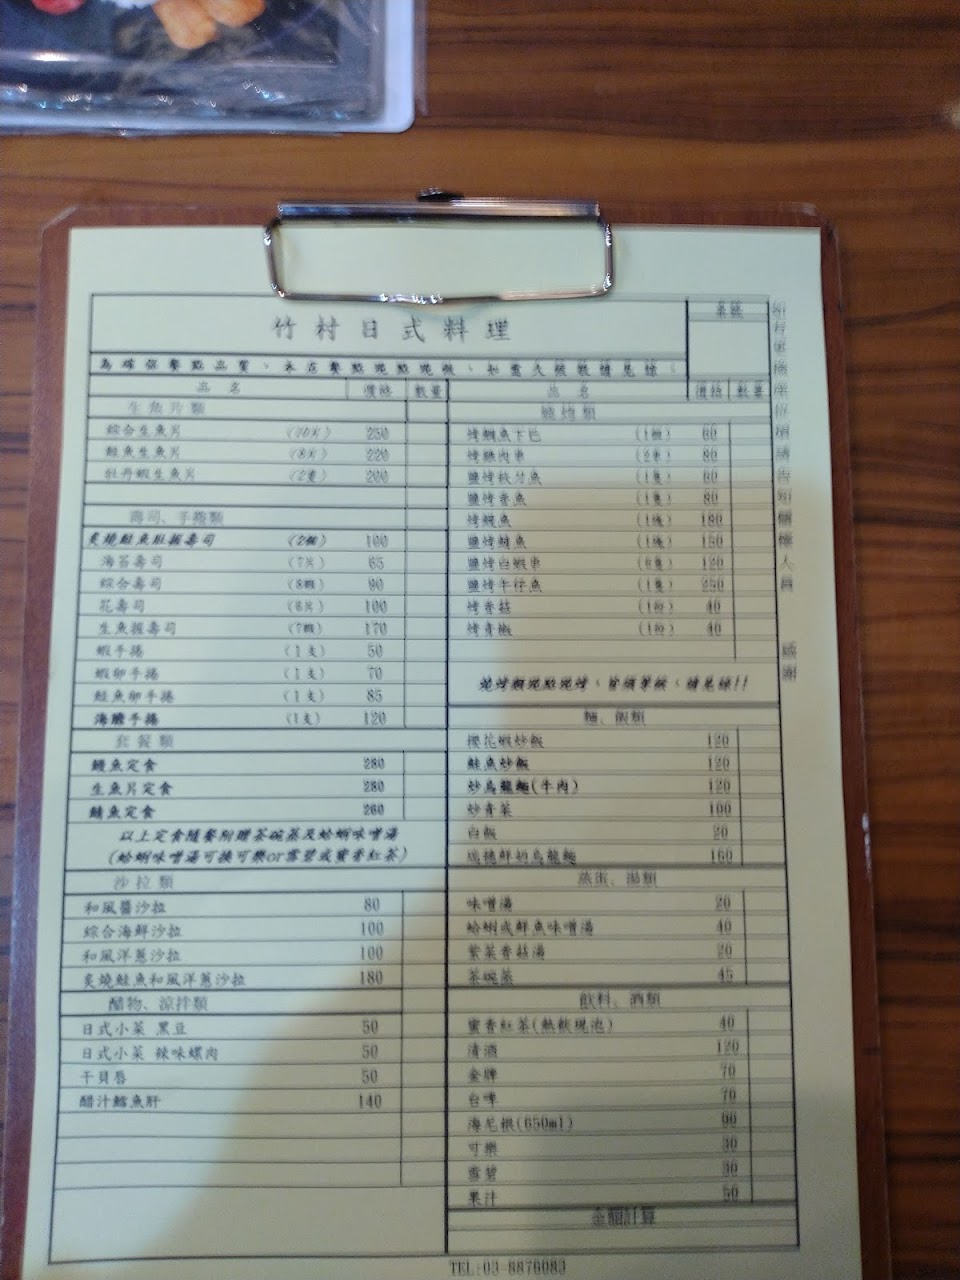 竹村日式料理
桌號
為確保餐點品質、本店餐點現點現做、如需久候敬請見諒
品 名 價格 數量
生魚片類
綜合生魚片 (10片) 250
鮭魚生魚片 (8片) 220
牡丹蝦生魚片 (2隻) 200
壽司、手捲類
炙燒鮭魚肚握壽司 (2個) 100
海苔壽司 (7片) 65
綜合壽司 (8個) 90
花壽司 (6片) 100
生魚握壽司 (7個) 170
蝦手捲 (1支) 50
蝦卵手捲 (1支) 70
鮭魚卵手捲 (1支) 85
海膽手捲 (1支) 120
套餐類
鰻魚定食 280
生魚片定食 280
鯖魚定食 260
以上定食隨餐附贈茶碗蒸及蛤蜊味噌湯
(蛤蜊味噌湯可換可樂or雪碧或蜜香紅茶)
沙拉類
和風醬沙拉 80
綜合海鮮沙拉 100
和風洋蔥沙拉 100
炙燒鮭魚和風洋蔥沙拉 180
醋物、涼拌類
日式小菜 黑豆 50
日式小菜 辣味螺肉 50
干貝唇 50
醋汁鱈魚肝 140
品 名 價格 數量
燒烤類
烤鯛魚下巴 (1個) 60
烤雞肉串 (2串) 80
鹽烤秋刀魚 (1隻) 60
鹽烤香魚 (1隻) 80
烤鰻魚 (1塊) 180
鹽烤鯖魚 (1塊) 150
鹽烤白蝦串 (6隻) 120
鹽烤午仔魚 (1隻) 250
烤香菇 (1份) 40
烤青椒 (1份) 40
燒烤類現點現烤、皆須等候、請見諒!!
麵、飯類
櫻花蝦炒飯 120
鮭魚炒飯 120
炒烏龍麵(牛肉) 120
炒青菜 100
白飯 20
瑞穗鮮奶烏龍麵 160
蒸蛋、湯類
味噌湯 20
蛤蜊或鮮魚味噌湯 40
紫菜香菇湯 20
茶碗蒸 45
飲料、酒類
蜜香紅茶(熱飲現泡) 40
清酒 120
金牌 70
台啤 70
海尼根(650ml) 90
可樂 30
雪碧 30
果汁 50
金額計算
如有更換座位煩請告知櫃檯人員 感謝
TEL:03-8876083